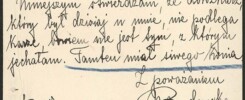 Niniejszym stwierdzam, że dorożkarz,
który był dzisiaj u mnie, nie podlega
karze, bowiem nie jest tym, z którym
jechałam. Tamten miał siwego konia
Z poważaniem